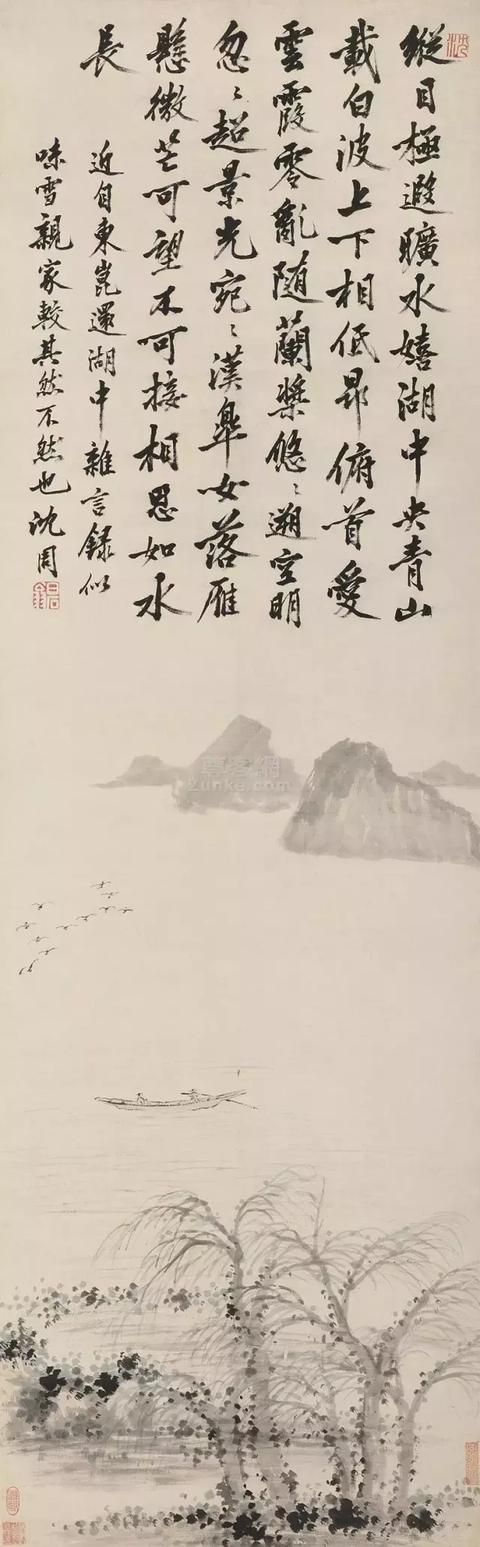 縱目極遐曠水嬉湖中央青山
載白波上下相低昂俯首愛
雲霞零亂随蘭槳悠〻遡空明
忽〻超景光宛〻漢皐女落雁
懸微芒可望不可接相思如水
長
近自東崑還湖中雜言録似
味雪親家較其然不然也沈周
白石翁
尊客網
zunka.com